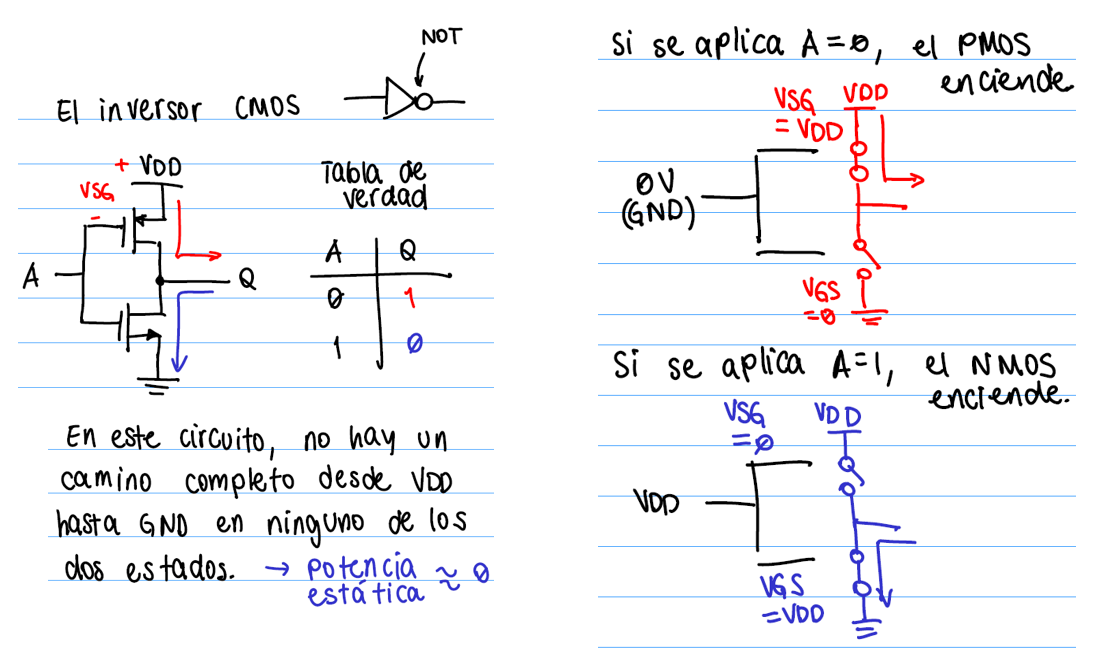 NOT
El inversor CMOS
+ VDD
VSG
-
A
Q
Tabla de
verdad
A Q
0 1
1 0
En este circuito, no hay un
camino completo desde VDD
hasta GND en ninguno de los
dos estados. → potencia ≈ 0
estática
Si se aplica A=0, el PMOS
enciende
VSG VDD
= VDD
0V
(GND)
VGS
=0
Si se aplica A=1, el NMOS
enciende.
VSG VDD
=0
VDD
VGS
=VDD